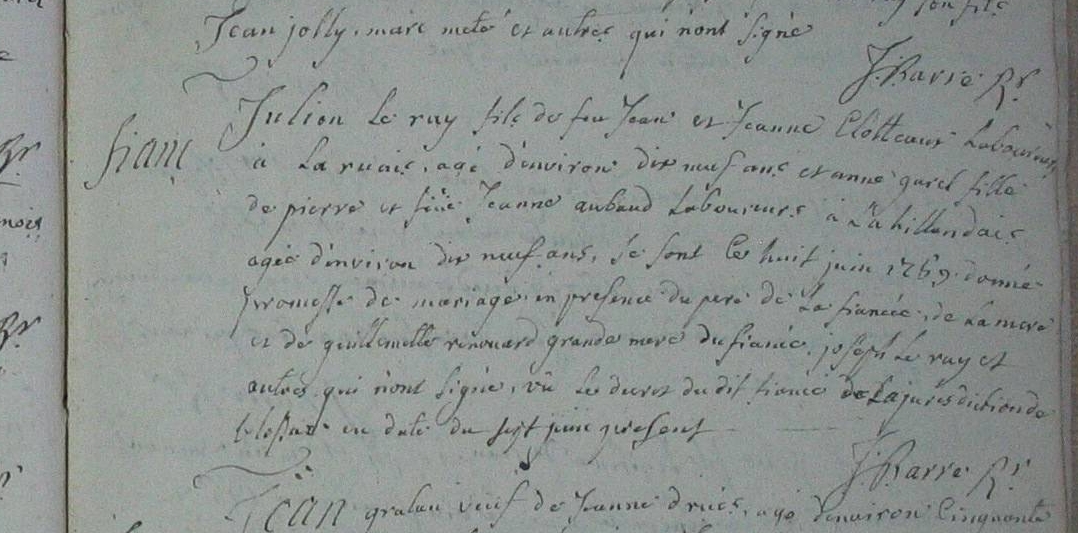 son fils
Jean jolly, marc meté et autres qui n'ont signé
J. Barre Rr.
fianç
Julien Le ruy fils de feu Jean et Jeanne Clotteaux Laboureurs
à La ruais, agé d'environ dix neuf ans et anne garel fille
de pierre et feüe Jeanne aubaud Laboureurs à La hillandais
agée d'environ dix neuf ans, se sont Ce huit juin 1769 donné
promesse de mariage en presence du pere de La fiancée, de La mere
et de guillemette renouard grande mere du fiancé, joseph Le ruy et
autres qui n'ont signé, vû Le decret du dit fiancé de La juresdiction de
en date du sept juin present
J. Barre Rr.
Jëan gralan veuf de Jeanne drues, agé d'environ Cinquante